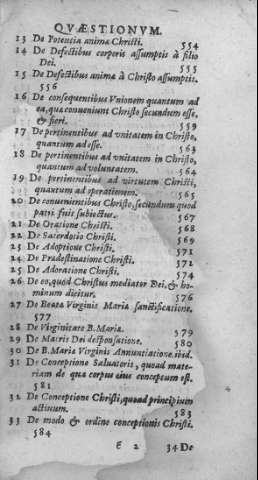 QVÆSTIONVM.
13 De Potentia animæ Christi. 554
14 De Defectibus corporis assumptis à filio
Dei. 555
15 De Defectibus animæ à Christo assumptis.
556
16 De consequentibus Vnionem quantum ad
ea, quæ conueniunt Christo secundum esse,
& fieri. 559
17 De pertinentibus ad vnitatem in Christo,
quantum ad esse. 563
18 De pertinentibus ad vnitatem in Christo,
quantum ad voluntatem. 564
19 De pertinentibus ad virtutem Christi,
quantum ad operationem. 565
20 De conuenientibus Christo, secundum quod
patri fuit subiectus. 567
21 De Oratione Christi. 568
22 De Sacerdotio Christi. 569
23 De Adoptione Christi. 571
24 De Prædestinatione Christi. 572
25 De Adoratione Christi. 574
26 De eo, quod Christus mediator Dei, & ho-
minum dicitur. 576
27 De Beata Virginis Maria sanctificatione.
577
28 De Virginitate B. Maria. 579
29 De Matris Dei desponsatione. 580
30 De B. Maria Virginis Annuntiatione. ibid.
31 De Conceptione Saluatoris, quoad mate-
riam de qua corpus eius conceptum est.
581
32 De Conceptione Christi, quoad principium
actiuum. 583
33 De modo & ordine conceptionis Christi.
584
E 2 34 De